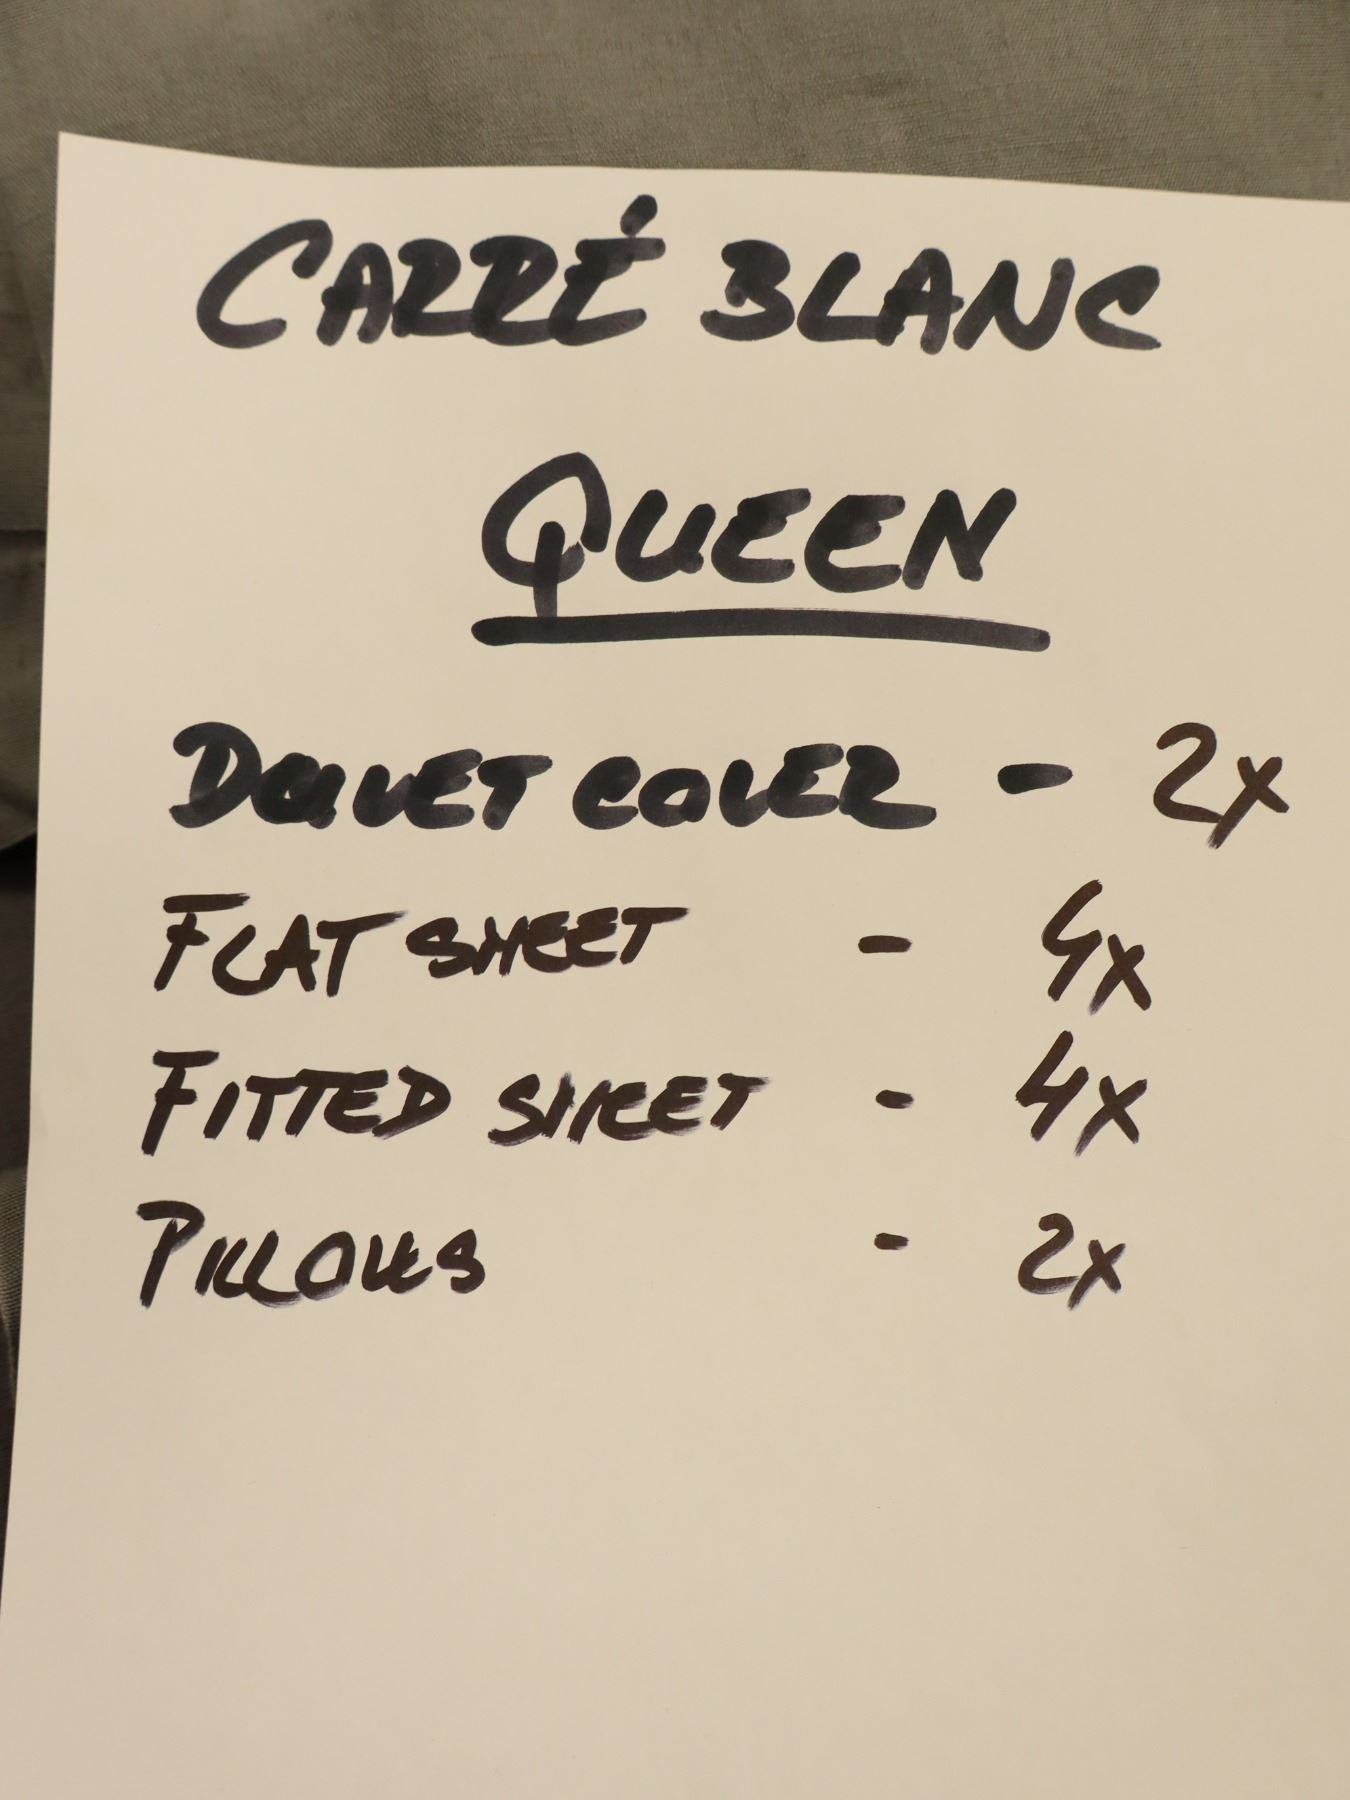 CARRÉ BLANC
QUEEN
DUVET COVER - 2x
FLAT SHEET - 4x
FITTED SHEET - 4x
PILLOWS - 2x